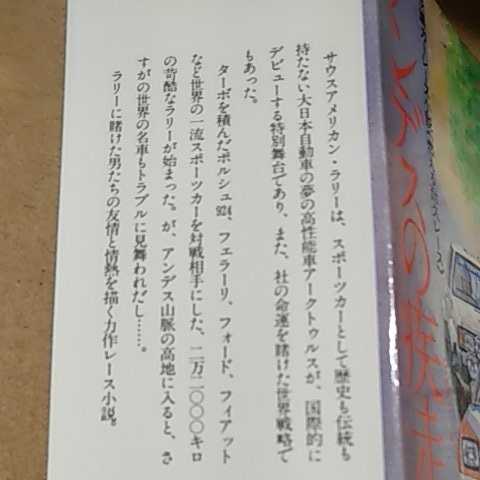 サウスアメリカン・ラリーは、スポーツカーとして歴史も伝統も
持たない大日本自動車の夢の高性能車アークトゥルスが、国際的に
デビューする特別舞台であり、また、社の命運を賭けた世界戦略で
もあった。
ターボを積んだポルシュ924、フェラーリ、フォード、フィアット
など世界の一流スポーツカーを対戦相手にした、二万二〇〇〇キロ
の苛酷なラリーが始まった。が、アンデス山脈の高地に入ると、さ
すがの世界の名車もトラブルに見舞われだし……。
ラリーに賭けた男たちの友情と情熱を描く力作レース小説。
の疾走